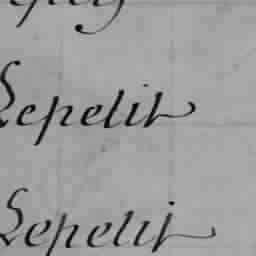 Lepelit
Lepelit